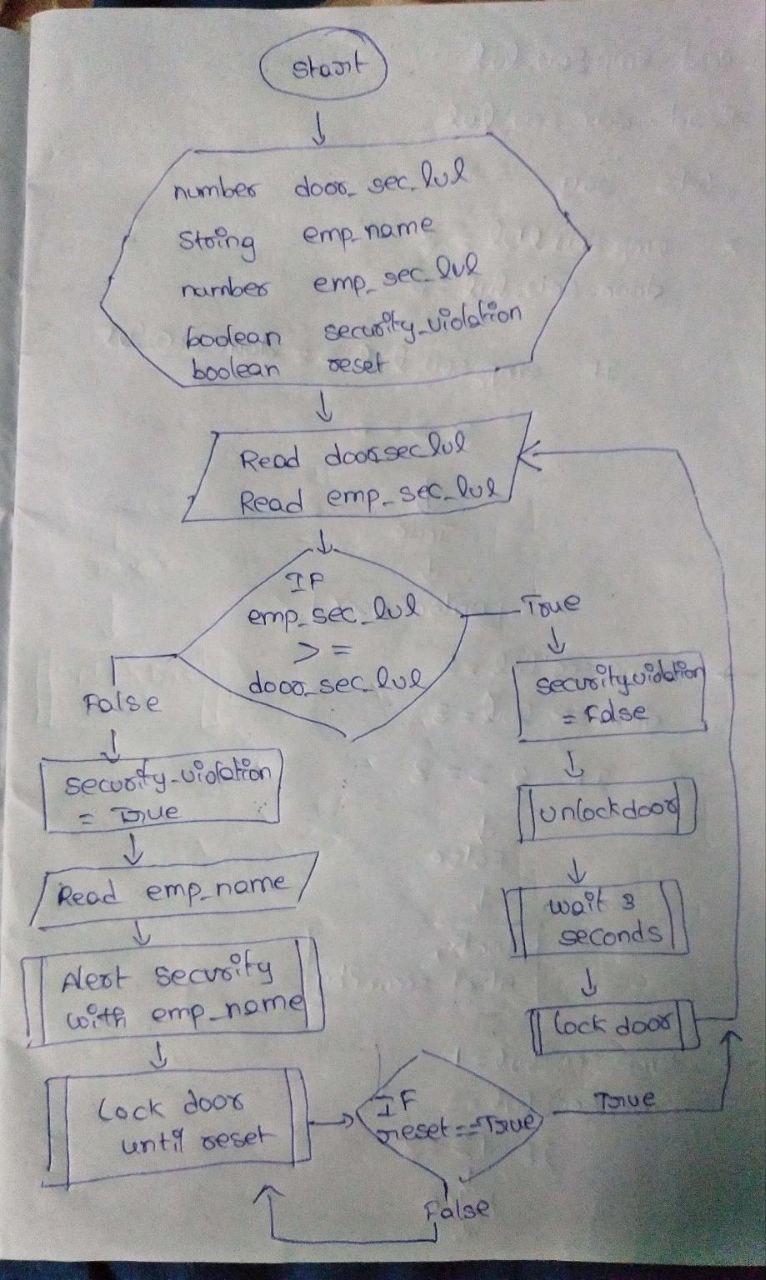 Start
number door_sec_lvl
String emp_name
number emp_sec_lvl
boolean security_violation
boolean reset
Read doorseclvl
Read emp_sec_lvl
IF
emp_sec_lvl
>=
door_sec_lvl
True
False
securityviolation
= False
unlockdoor
wait 3
seconds
lock door
security_violation
= True
Read emp_name
Alert security
with emp_name
Lock door
until reset
IF
reset==True
True
False